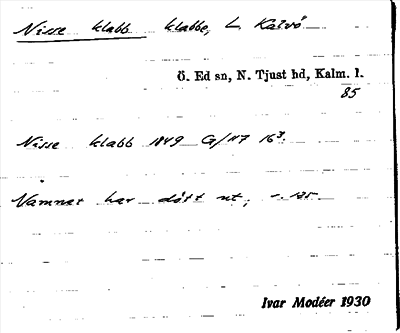 Nisse klabb klabbe, L. Kalvö
Ö. Ed sn, N. Tjust hd, Kalm. l.
85
Nisse klabb 1849 G/117 16³.
Namnet har dött ut,
Ivar Modéer 1930